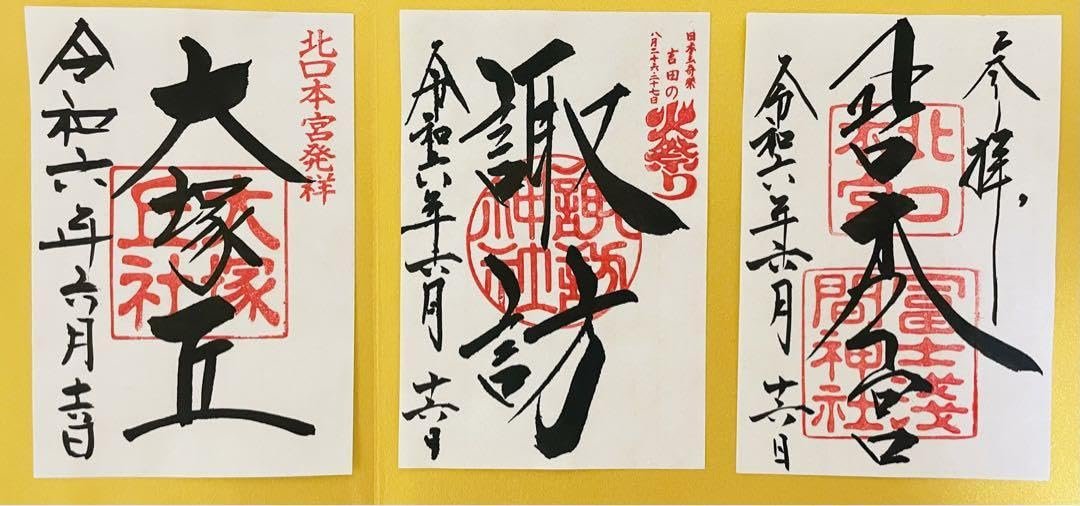 北口本宮発祥
大塚丘
大塚
丘社
令和六年六月十六日
日本三奇祭
吉田の火祭り
八月二十六・二十七日
諏訪
諏訪
神社
令和六年六月十六日
参拝
北口本宮
北口
本宮
冨士淺
間神社
令和六年六月十六日